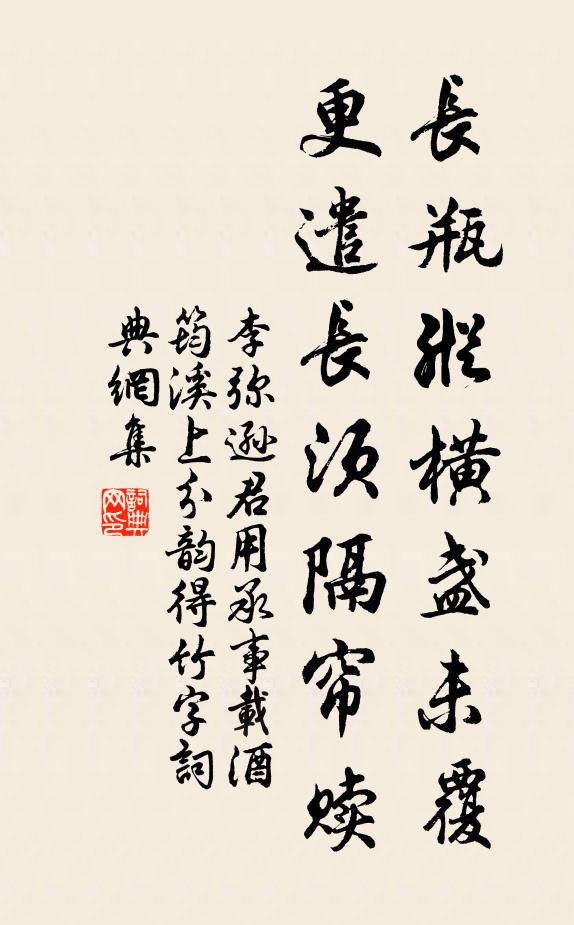 長瓶縱橫盞未覆
更遣長須隔帘赎
李弥遜君用承事載酒
筠溪上分韵得竹字詞
典網集
詞典网印